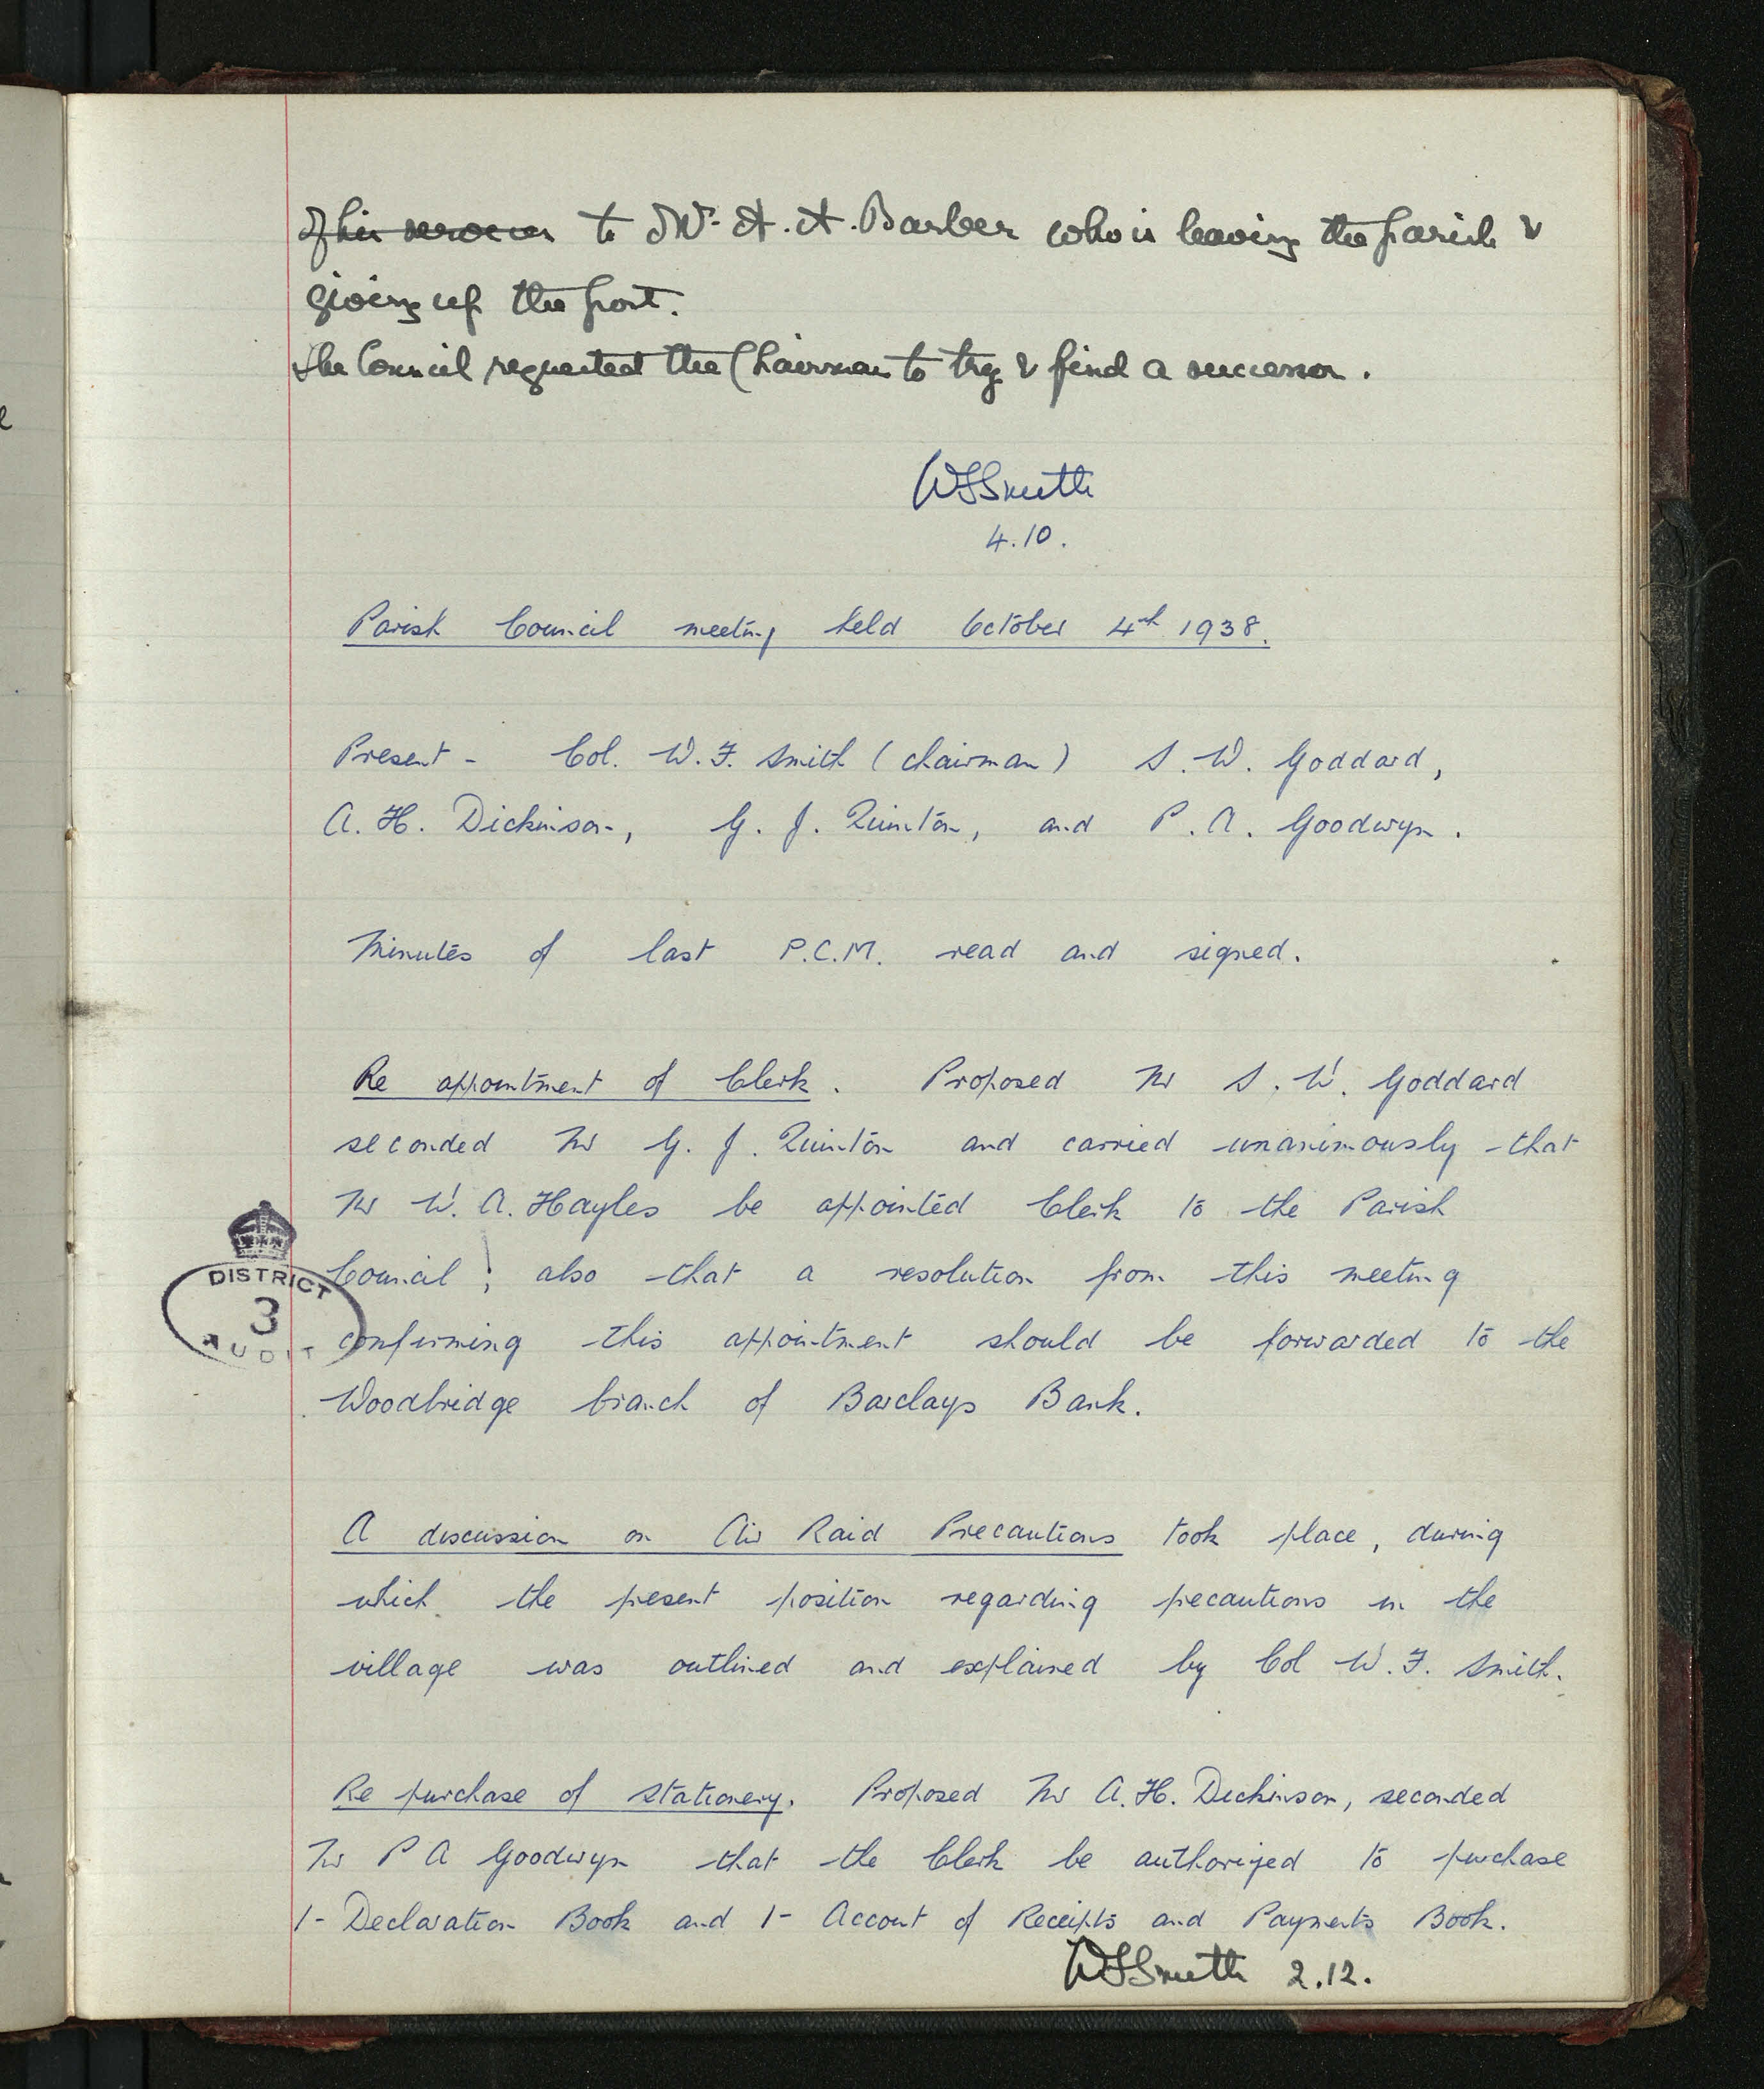 of his services to Mr. A. A. Barber who is leaving the parish &
giving up the post.
The Council requested the Chairman to try & find a successor.
WFSmith
4.10.
Parish Council meeting held October 4th 1938.
Present - Col. W. F. Smith (Chairman) S. W. Goddard,
A. H. Dickinson, G. J. Quinton, and P. A. Goodwyn.
Minutes of last P.C.M. read and signed.
Re appointment of Clerk. Proposed Mr S. W. Goddard
seconded Mr G. J. Quinton and carried unanimously that
Mr W. A. Hayles be appointed Clerk to the Parish
Council; also that a resolution from this meeting
confirming this appointment should be forwarded to the
Woodbridge branch of Barclays Bank.
DISTRICT
3
AUDIT
A discussion on Air Raid Precautions took place, during
which the present position regarding precautions in the
village was outlined and explained by Col W. F. Smith.
Re purchase of stationery. Proposed Mr A. H. Dickinson, seconded
Mr P A Goodwyn that the Clerk be authorized to purchase
1- Declaration Book and 1- Account of Receipts and Payments Book.
WFSmith 2.12.